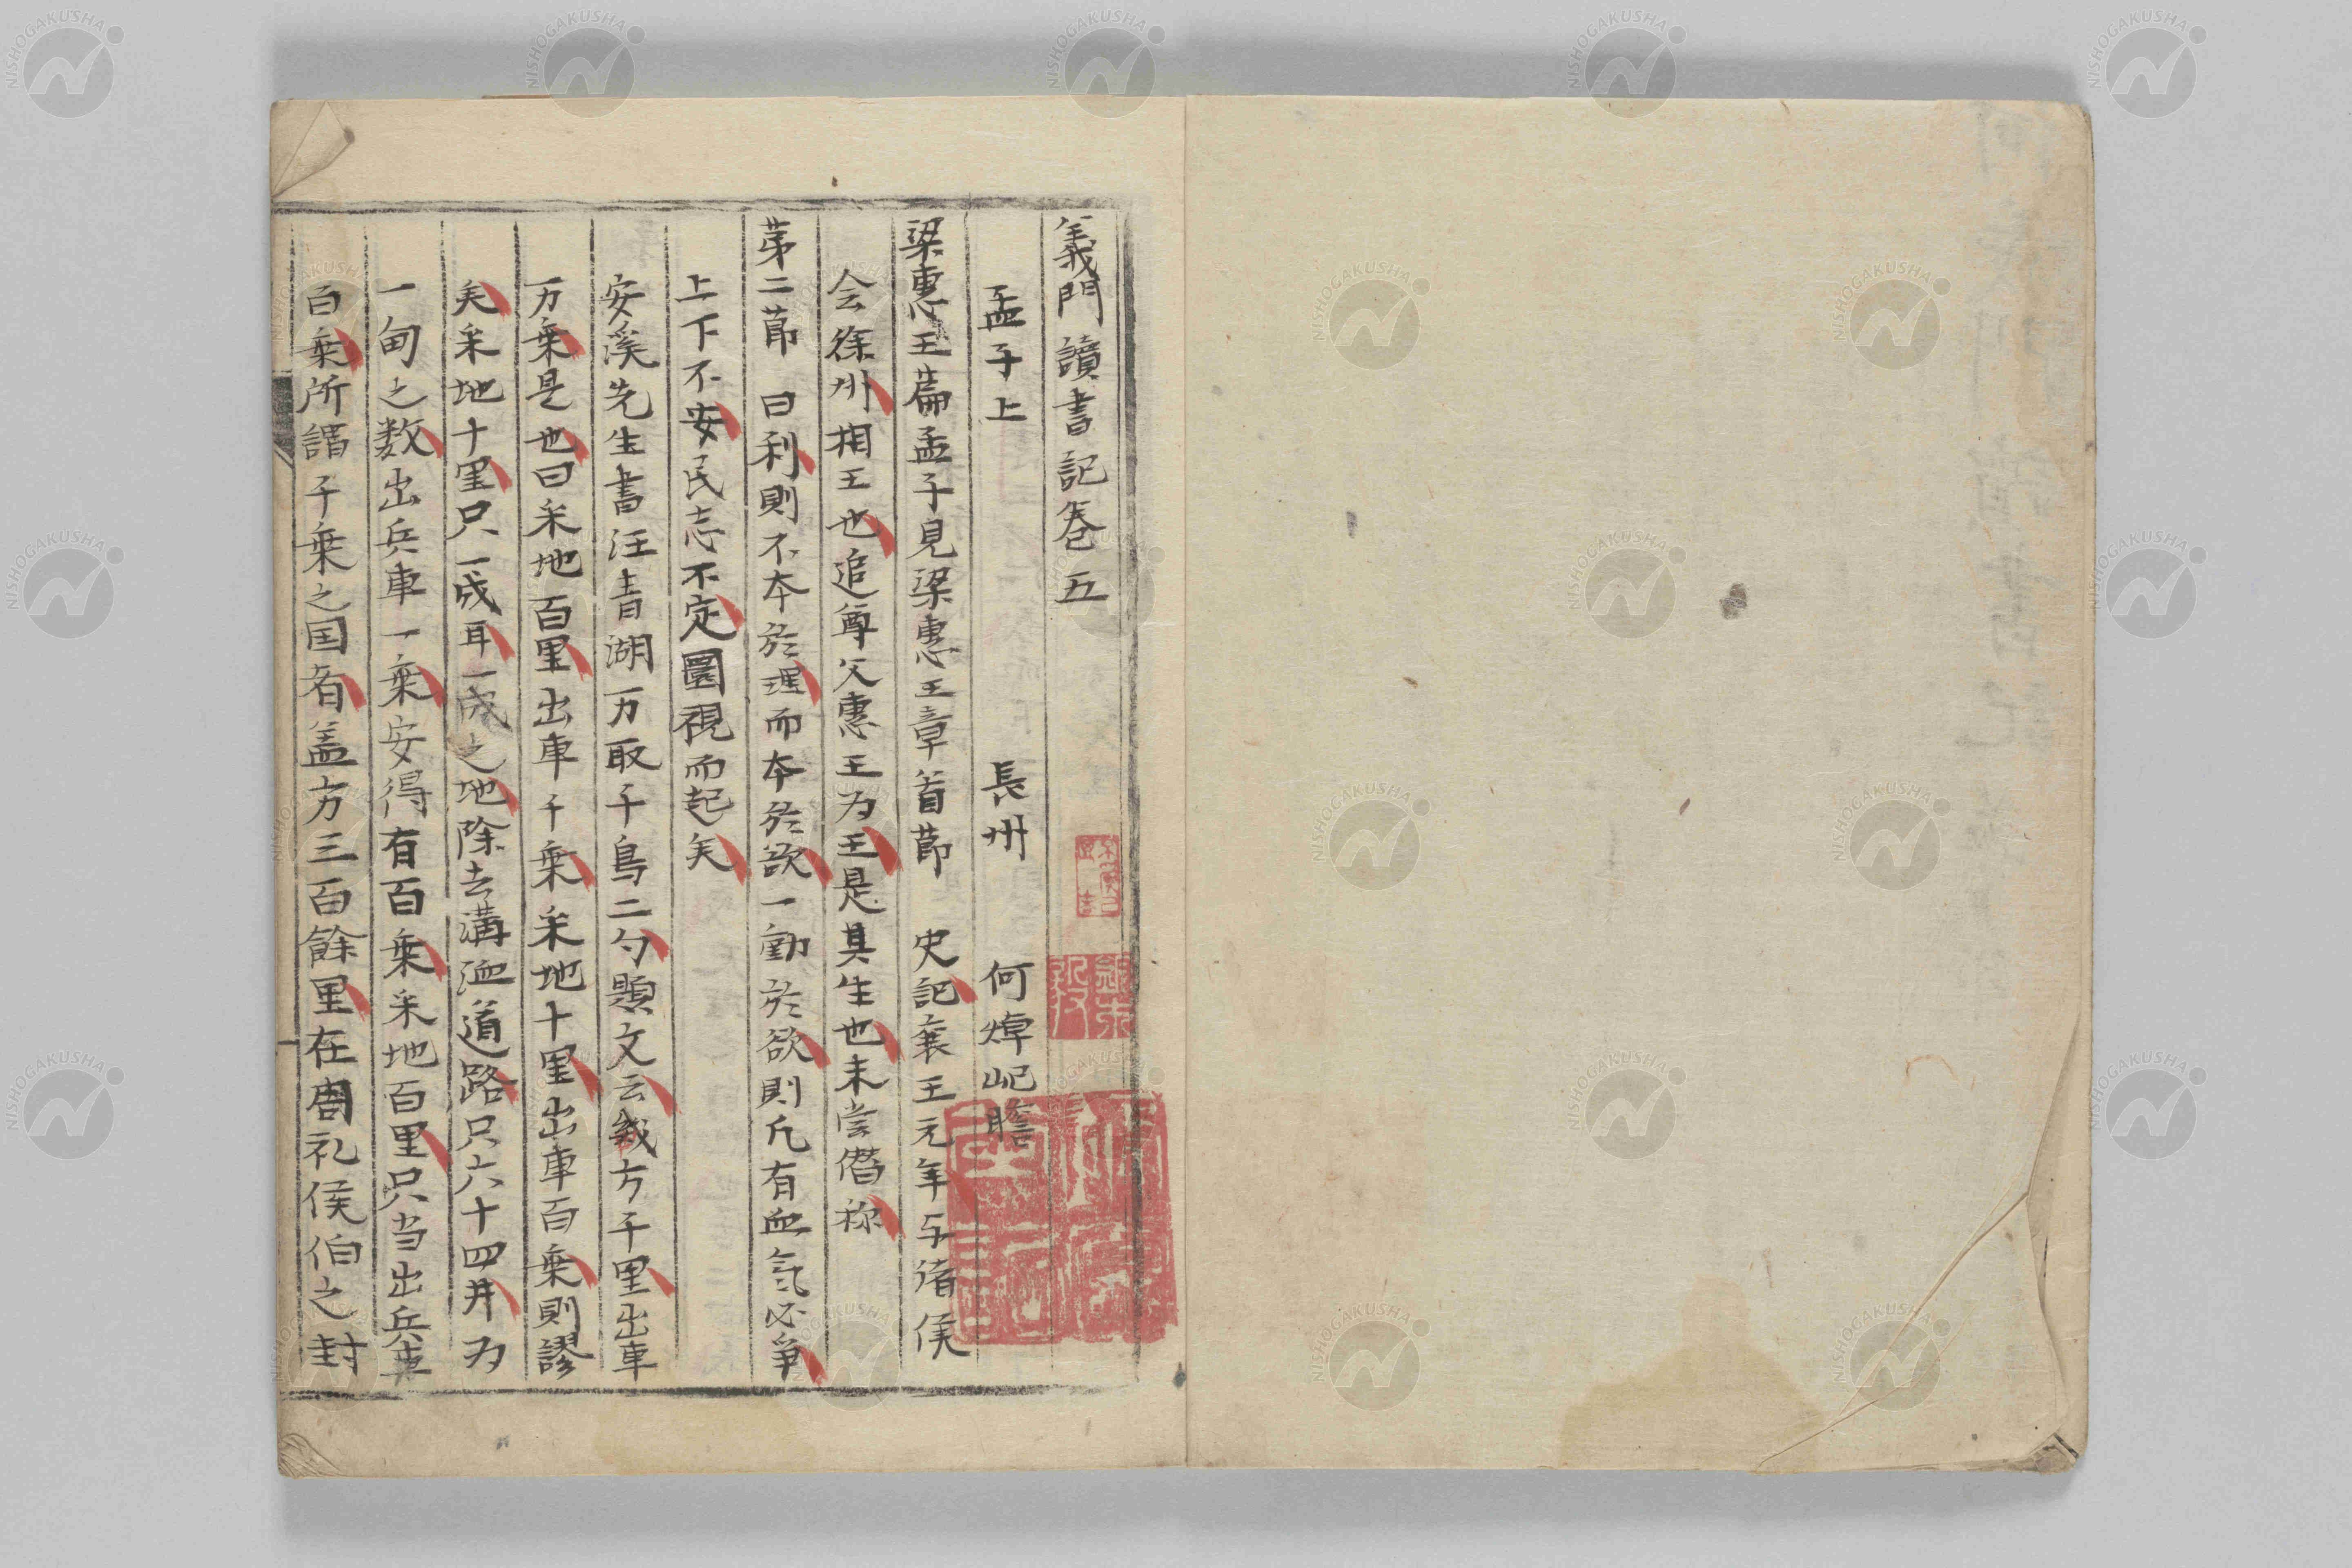 義門讀書記卷五
孟子上　長州　何焯屺瞻
梁惠王篇孟子見梁惠王章首節　史記襄王元年与諸侯
会徐州相王也追尊父惠王为王是其生也未尝僭称
第二節　曰利則不本於理而本於欲一動於欲則凡有血気必爭
上下不安民志不定圜視而起矣
安溪先生書汪青湖万取千焉二句題文云幾方千里出車
万乗是也曰采地百里出車千乗采地十里出車百乗則謬
矣采地十里只一成耳一成之地除去溝洫道路只六十四井为
一甸之数出兵車一乗安得有百乗采地百里只当出兵車
百乗所謂千乗之国者盖方三百餘里在周礼侯伯之封
NISHOGAKUSHA